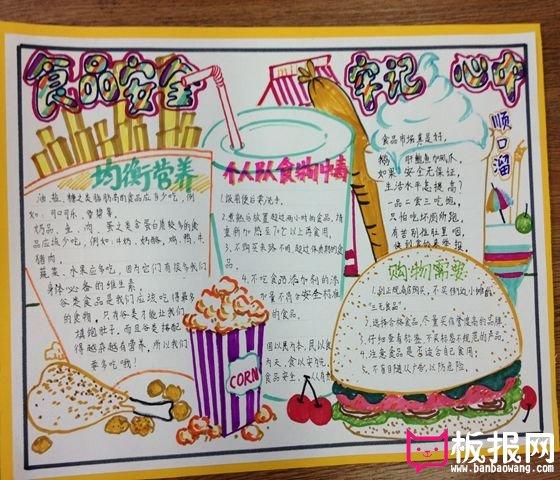 食品安全 牢记 心中
均衡营养
油、盐、糖之类脂肪高的食品应少吃,例
如:可口可乐、薯
奶品、鱼、肉、蛋之类含蛋白质较多的食
品应该少吃,例如:牛奶、奶酪、鸡、鸭、牛
猪肉。
蔬菜、水果应多吃,因为它们有许多我们
身体必备的维生素
谷类食品是我们应该吃得最多
的食物,只有谷类才能让我们
填饱肚子。而且谷类搭配
得越杂越有营养,所以我们
要多吃哦!
个人防食物中毒
1.饭前便后要洗手。
2.煮熟后放置超过两小时的食品,请
重新加热至70℃以上再食用。
3.不购买来路不明、超过保质期的食
品。
4.不吃食品添加剂的添
加量不符合安全标准
的食品。
CORN
顺口溜
食品市场真是
如果安全无保证,
生活水平怎提高?
一品二尝三吃饱,
只怕吃坏厕所跑。
购物需要
1.到正规商店购买,不买街边小摊的
"三无食品"。
2.选择合格食品,
3.仔细查看标签,不买标志不规范的产品。
4.注意食品是否适合自己食用;
5.不盲目随从广告,以防危险。
板报网
www.banbaowang.com